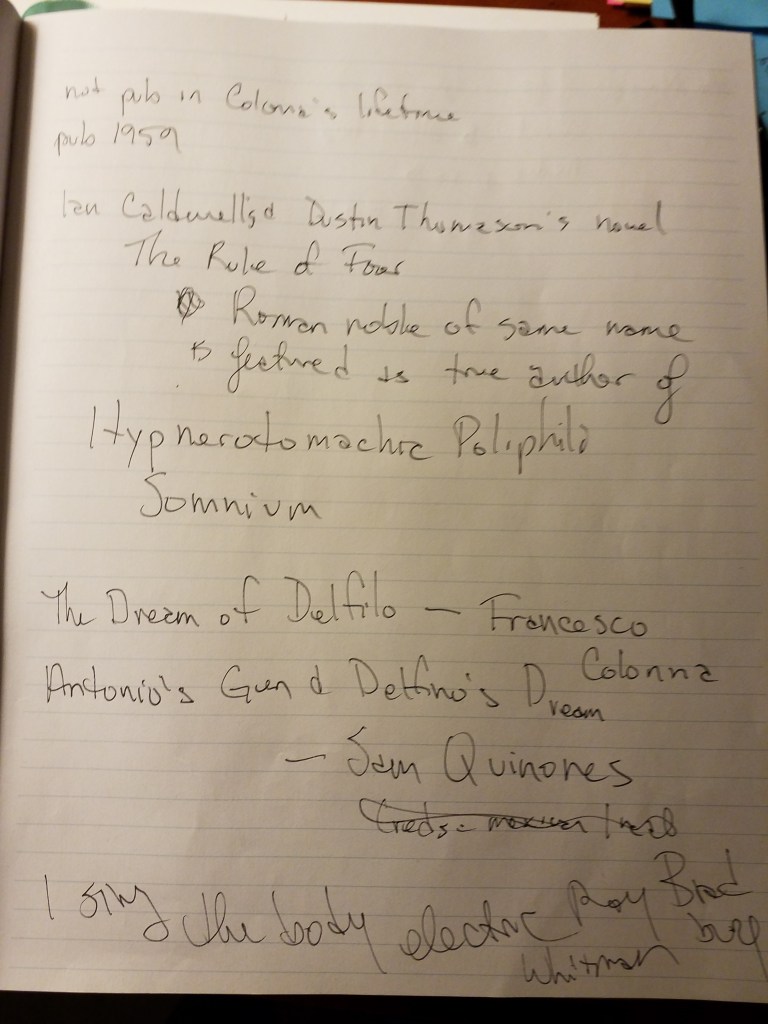 not pub in Colonna's lifetime
pub 1959
Ian Caldwell's & Dustin Thomason's novel
The Rule of Four
Roman noble of same name
featured as true author of
Hypnerotomachia Poliphilo
Somnium
The Dream of Delfilo — Francesco
Colonna
Antonio's Gun & Delfino's Dream
— Sam Quinones
I sing the body electric Ray Brad
bury
Whitman